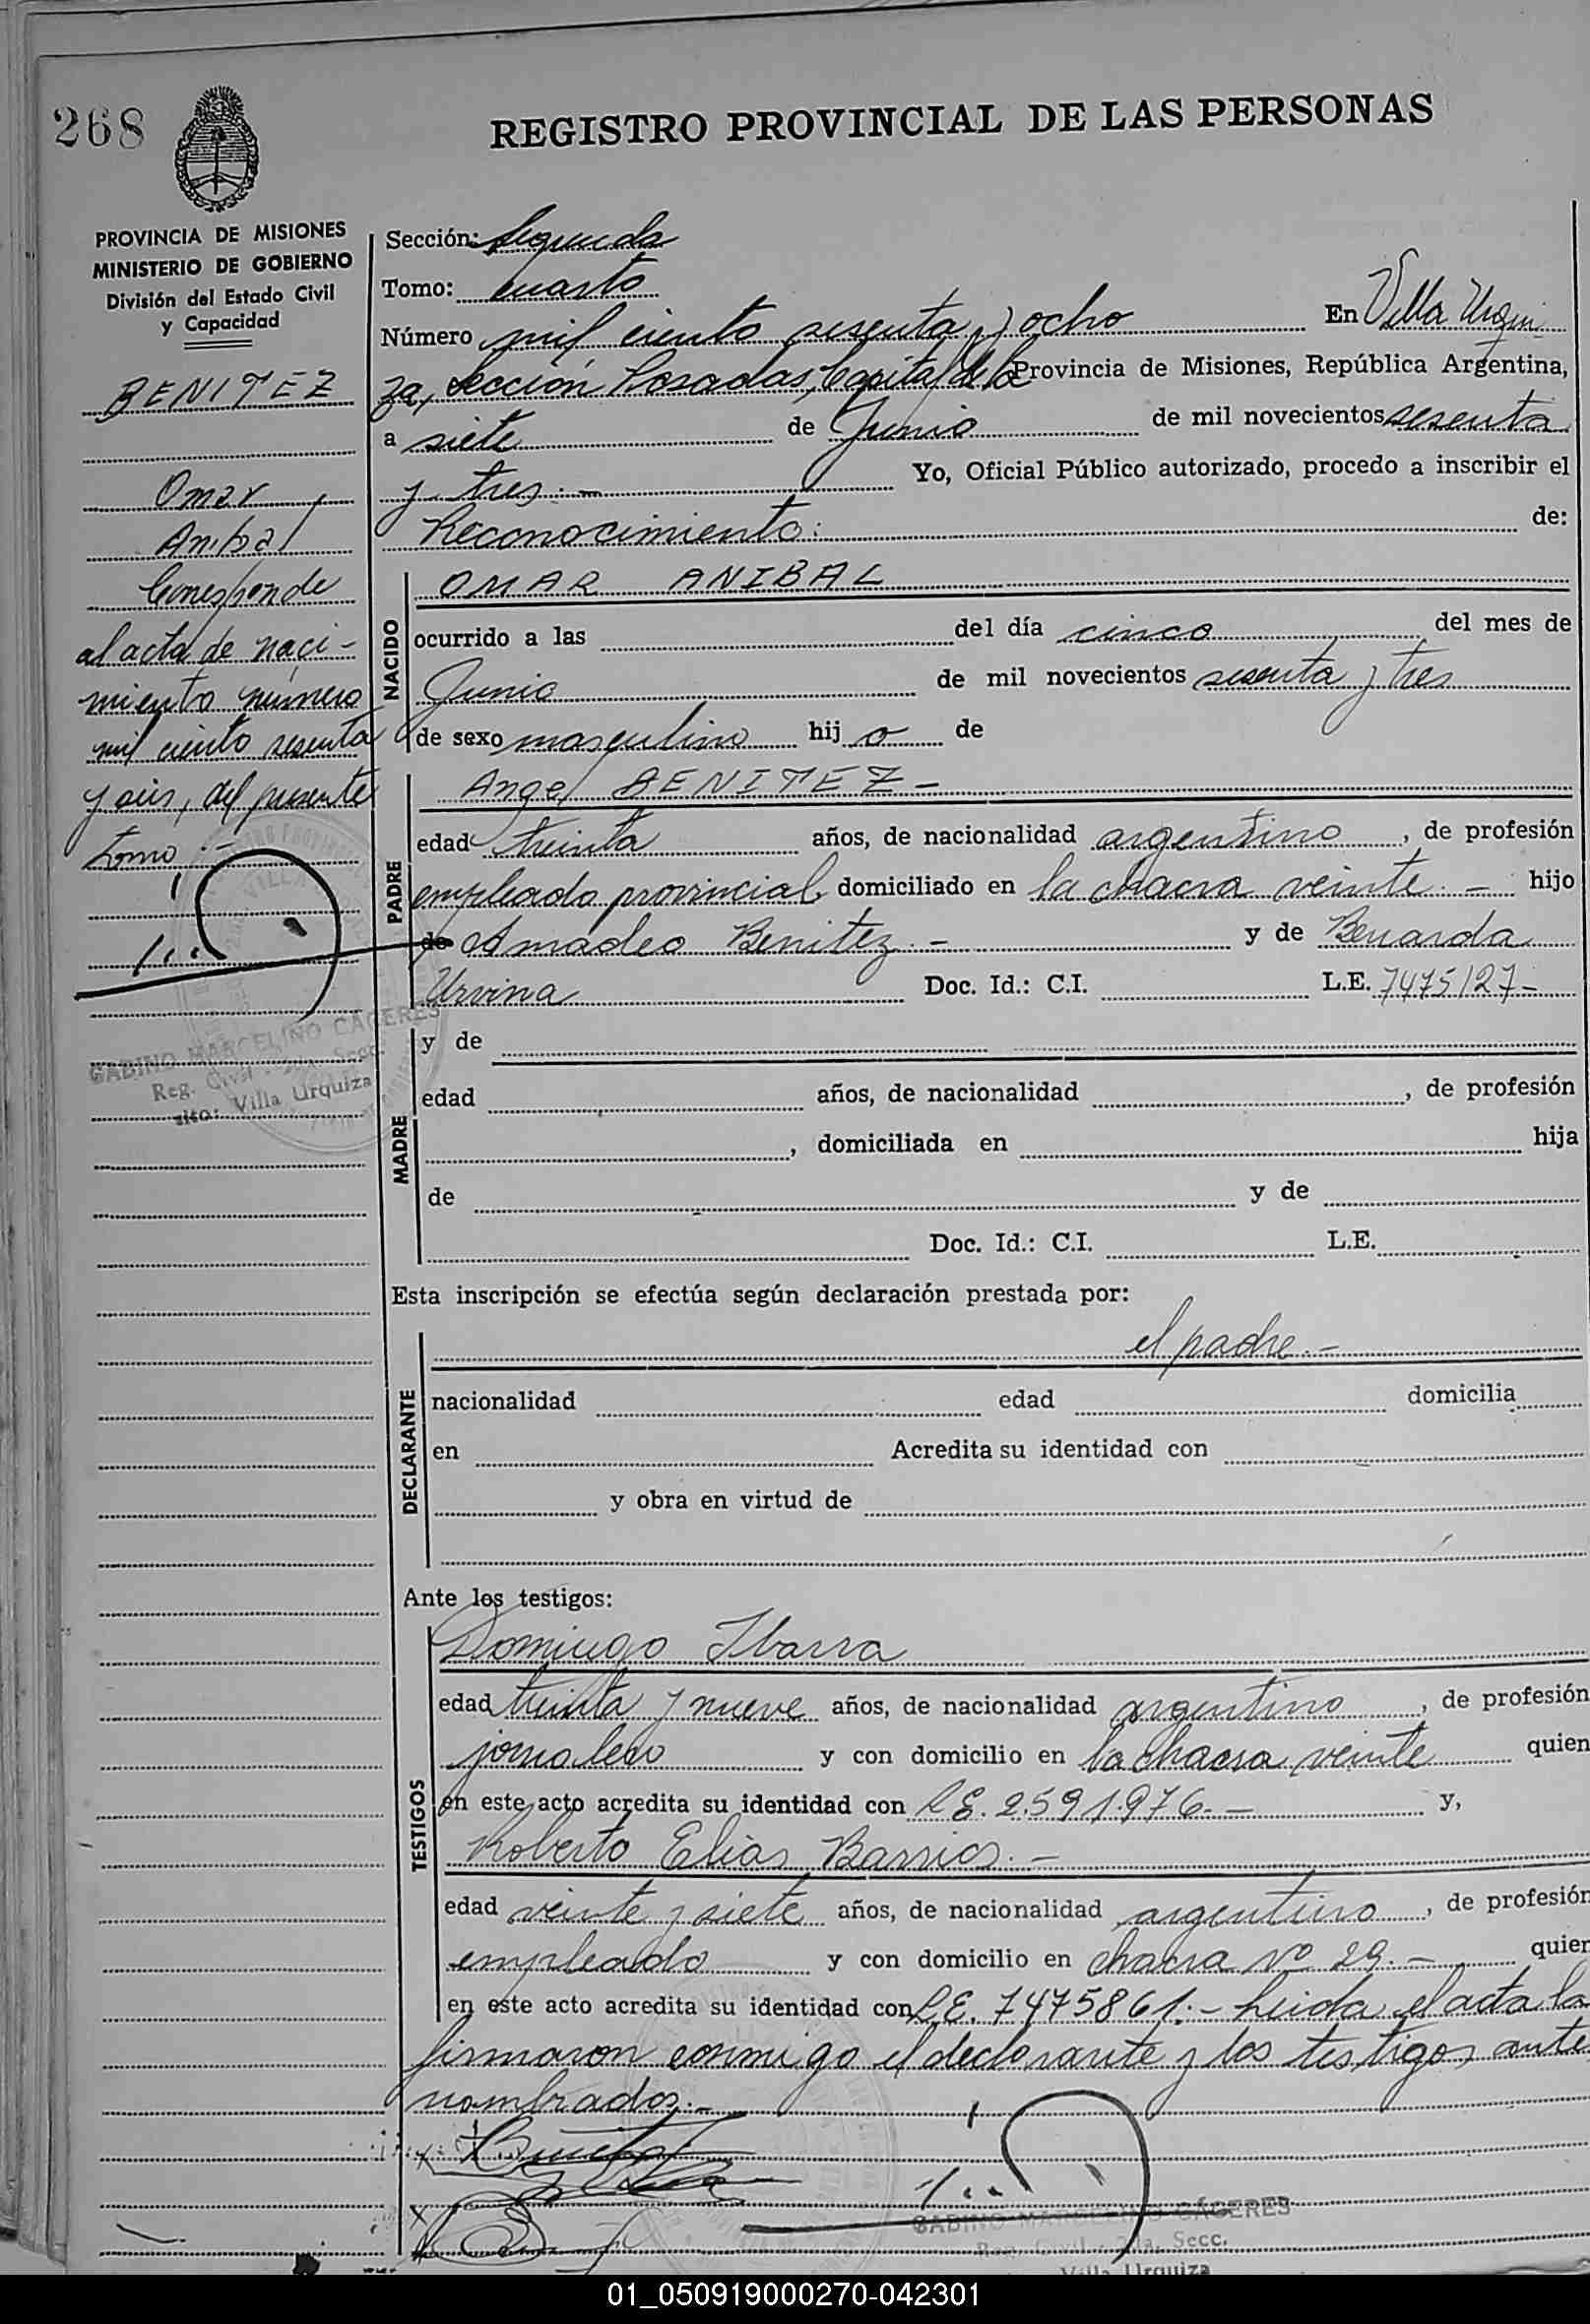 268
REGISTRO PROVINCIAL DE LAS PERSONAS
PROVINCIA DE MISIONES
MINISTERIO DE GOBIERNO
División del Estado Civil
y Capacidad
BENITEZ
Omar
Anibal
Corresponde
al acta de naci-
miento número
mil ciento sesenta
y seis, del presente
tomo.-
GABINO MARCELINO CÁCERES
Reg. Civil - 2da. Secc.
Villa Urquiza
Sección: Segunda
Tomo: cuarto
Número mil ciento sesenta y ocho En Villa Urqui
za, Sección Posadas, Capital de la Provincia de Misiones, República Argentina,
a siete de Junio de mil novecientos sesenta
y tres.- Yo, Oficial Público autorizado, procedo a inscribir el
Reconocimiento: de:
NACIDO
OMAR ANIBAL
ocurrido a las del día cinco del mes de
Junio de mil novecientos sesenta y tres
de sexo masculino hij o de
PADRE
Angel BENITEZ -
edad treinta años, de nacionalidad argentino, de profesión
empleado provincial, domiciliado en la chacra veinte.- hijo
de Amadeo Benitez.- y de Benarda
Urvina Doc. Id.: C.I. L.E. 7475127-
MADRE
y de
edad años, de nacionalidad , de profesión
, domiciliada en hija
de y de
Doc. Id.: C.I. L.E.
Esta inscripción se efectúa según declaración prestada por:
DECLARANTE
el padre.-
nacionalidad edad domicilia
en Acredita su identidad con
y obra en virtud de
Ante los testigos:
TESTIGOS
Domingo Ibarra
edad treinta y nueve años, de nacionalidad argentino, de profesión
jornalero y con domicilio en la chacra veinte quien
en este acto acredita su identidad con L.E. 2.591.976.- y,
Roberto Elias Barrios.-
edad veinte y siete años, de nacionalidad argentino, de profesión
empleado y con domicilio en chacra Nº 29.- quien
en este acto acredita su identidad con L.E. 7475861.- Leida el acta la
firmaron conmigo el declarante y los testigos ante
nombrados.-
GABINO MARCELINO CÁCERES
Reg. Civil - 2da. Secc.
Villa Urquiza
01_050919000270-042301